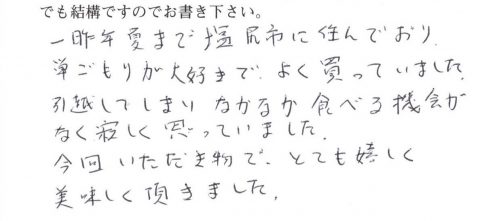 でも結構ですのでお書き下さい。
一昨年夏まで塩尻市に住んでおり、
巣ごもりが大好きで、よく買っていました。
引越してしまいなかなか食べる機会が
なく寂しく思っていました。
今回いただき物で、とても嬉しく
美味しく頂きました。